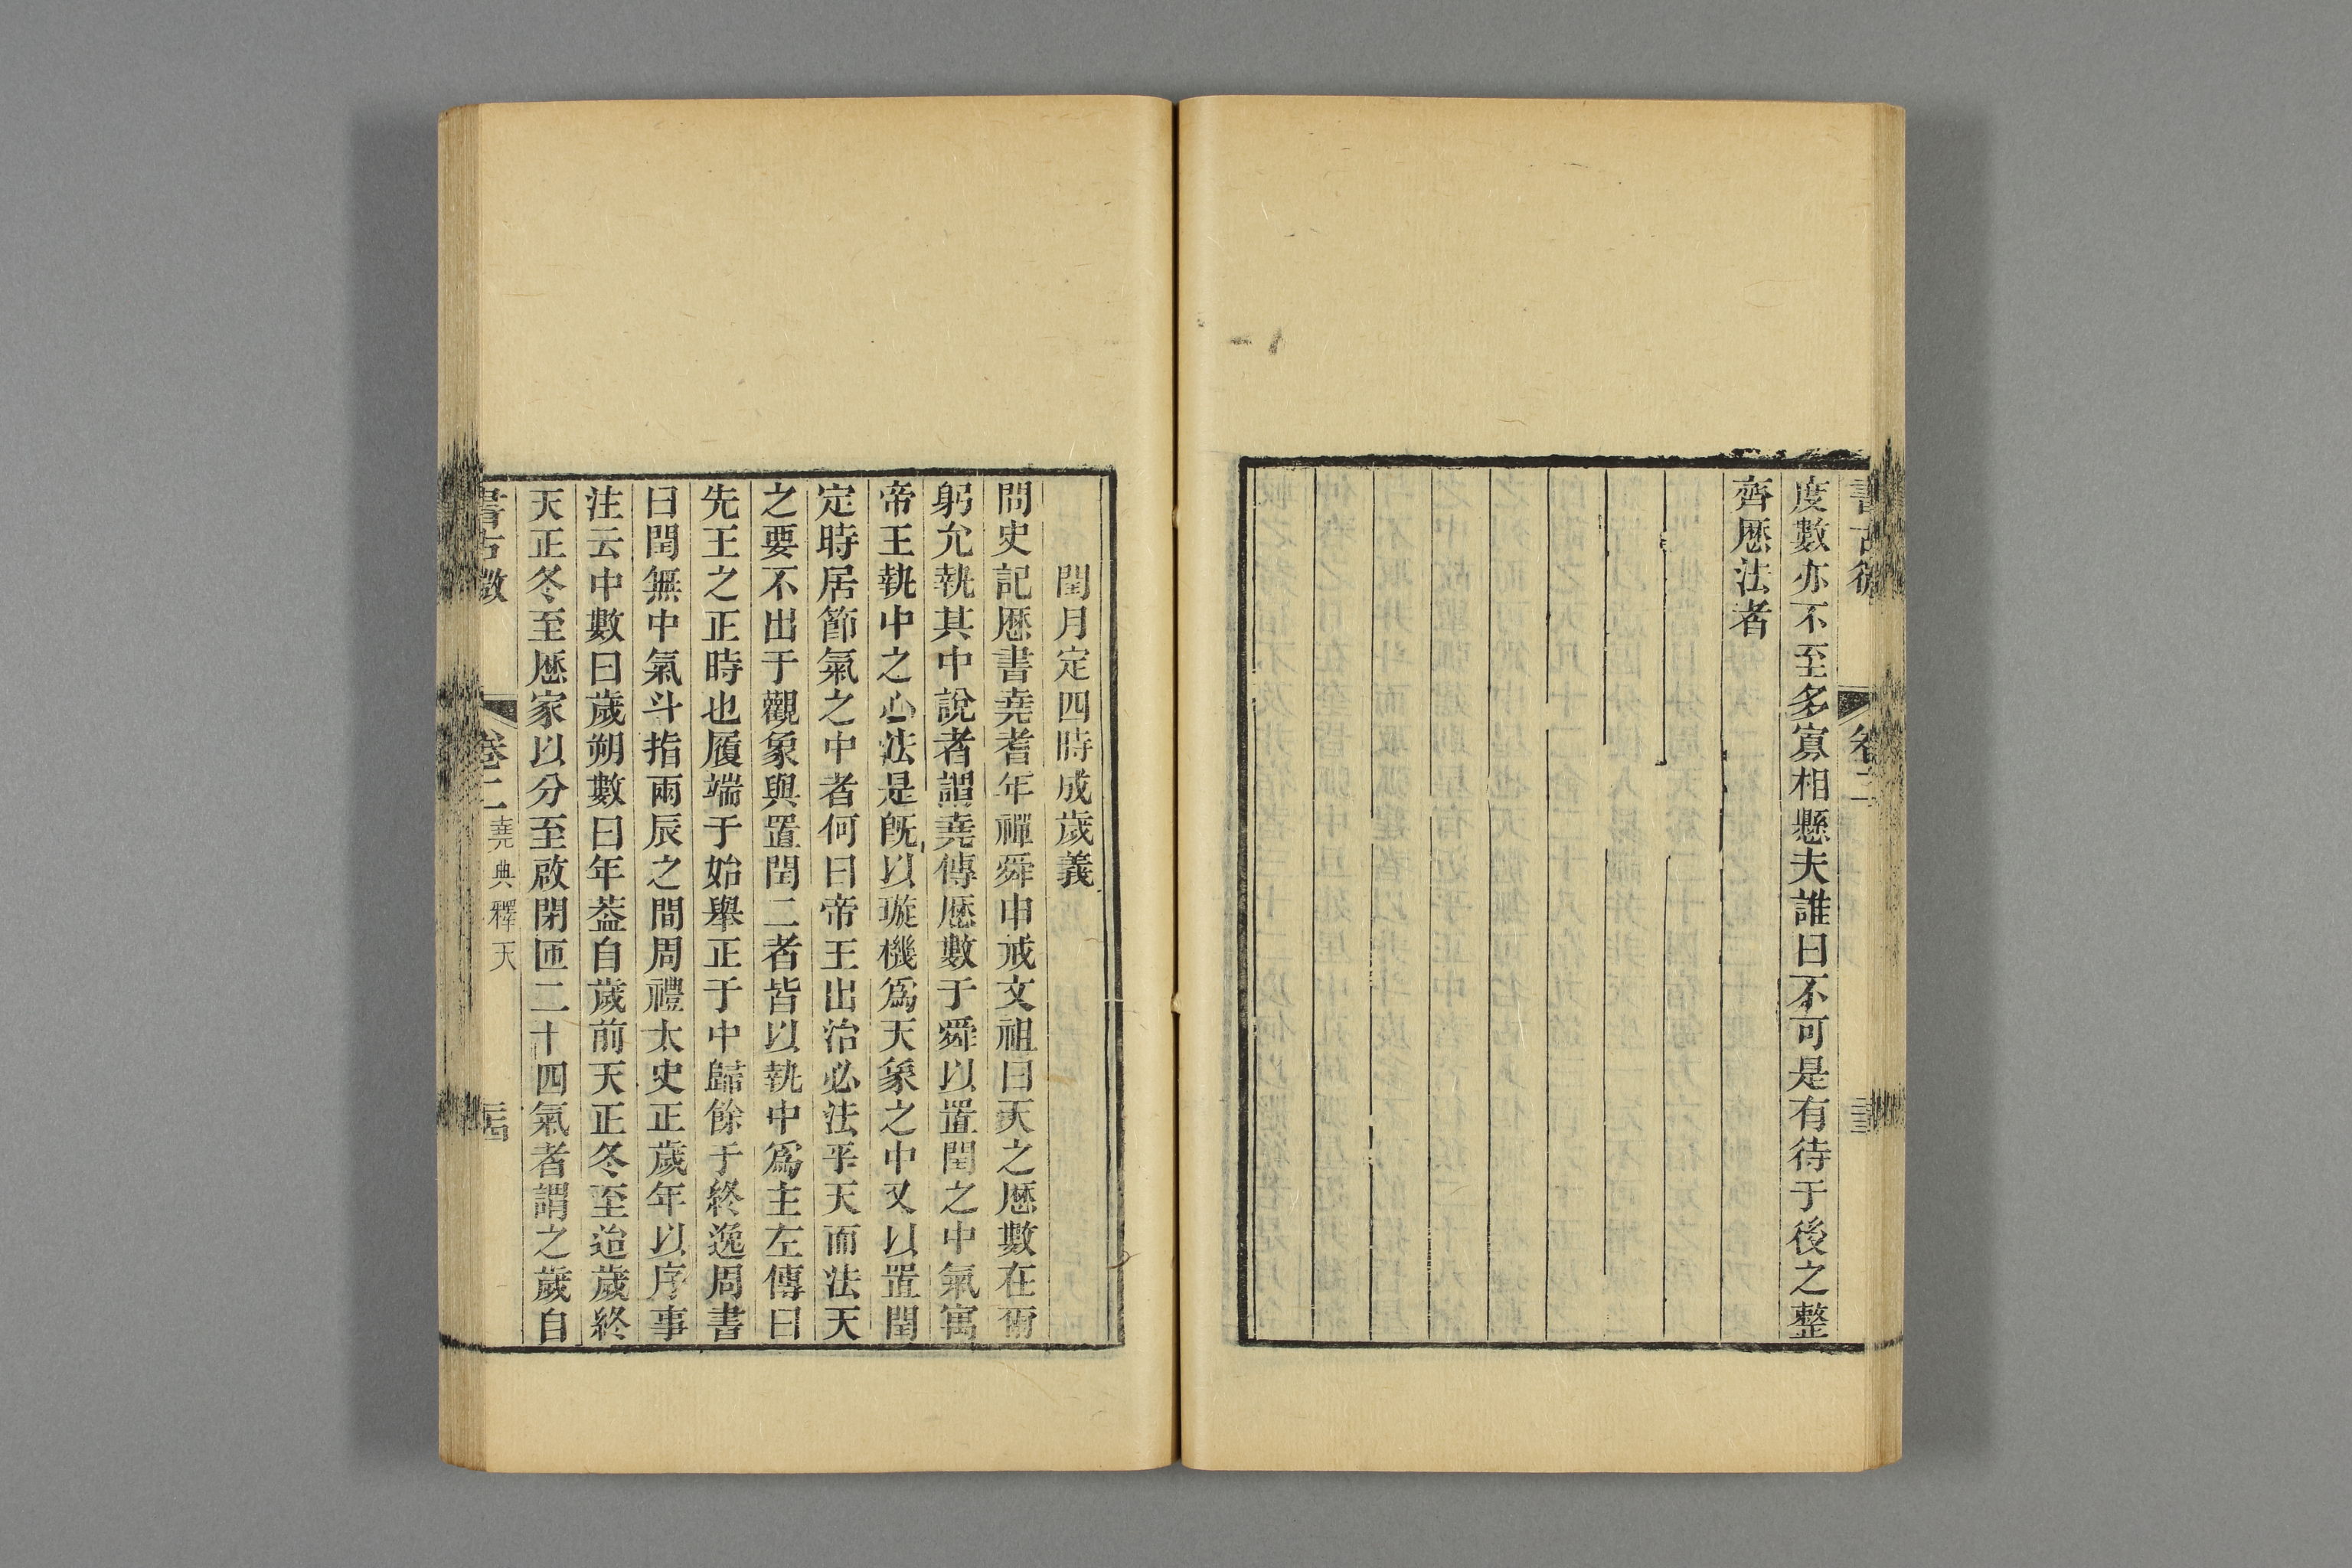 書古微
卷二
度數亦不至多寡相懸夫誰曰不可是有待于後之整
齊厯法者
閏月定四時成歲義
問史記厯書堯耆年禪舜申戒文祖曰天之厯數在爾
躬允執其中說者謂堯傳厯數于舜以置閏之中氣寓
帝王執中之心法是旣以璇機爲天象之中又以置閏
定時居節氣之中者何曰帝王出治必法乎天而法天
之要不出于觀象與置閏二者皆以執中爲主左傳曰
先王之正時也履端于始舉正于中歸餘于終逸周書
曰閏無中氣斗指兩辰之間周禮太史正歲年以序事
注云中數曰歲朔數曰年葢自歲前天正冬至迨歲終
天正冬至厯家以分至啟閉匝二十四氣者謂之歲自
書古微
卷二
堯典釋天